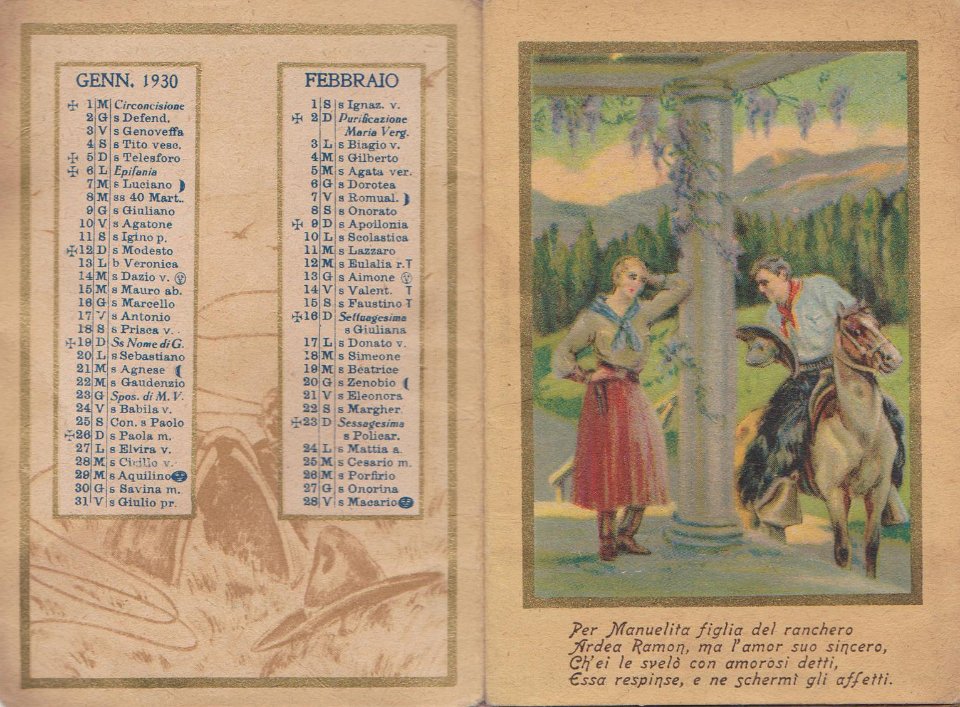 GENN. 1930
✠ 1 M Circoncisione
2 G s Defend.
3 V s Genoveffa
4 S s Tito vesc.
✠ 5 D s Telesforo
✠ 6 L Epifania
7 M s Luciano ☽
8 M ss 40 Mart..
9 G s Giuliano
10 V s Agatone
11 S s Igino p.
✠ 12 D s Modesto
13 L b Veronica
14 M s Dazio v.
15 M s Mauro ab.
16 G s Marcello
17 V s Antonio
18 S s Prisca v.
✠ 19 D Ss Nome di G.
20 L s Sebastiano
21 M s Agnese ☾
22 M s Gaudenzio
23 G Spos. di M. V.
24 V s Babila v.
25 S Con. s Paolo
✠ 26 D s Paola m.
27 L s Elvira v.
28 M s Cirillo v.
29 M s Aquilino
30 G s Savina m.
31 V s Giulio pr.
FEBBRAIO
1 S s Ignaz. v.
✠ 2 D Purificazione
Maria Verg.
3 L s Biagio v.
4 M s Gilberto
5 M s Agata ver.
6 G s Dorotea
7 V s Romual. ☽
8 S s Onorato
✠ 9 D s Apollonia
10 L s Scolastica
11 M s Lazzaro
12 M s Eulalia r. T
13 G s Aimone
14 V s Valent. T
15 S s Faustino T
✠ 16 D Settuagesima
s Giuliana
17 L s Donato v.
18 M s Simeone
19 M s Beatrice
20 G s Zenobio ☾
21 V s Eleonora
22 S s Margher.
✠ 23 D Sessagesima
s Policar.
24 L s Mattia a.
25 M s Cesario m.
26 M s Porfirio
27 G s Onorina
28 V s Macario
Per Manuelita figlia del ranchero
Ardea Ramon, ma l'amor suo sincero,
Ch'ei le svelò con amorosi detti,
Essa respinse, e ne schermì gli affetti.